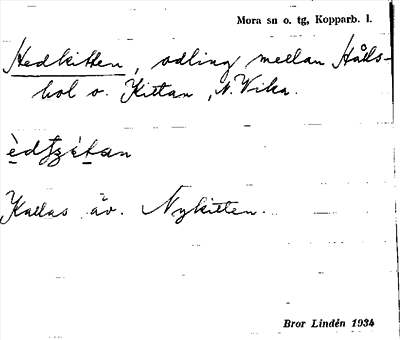 Mora sn o. tg, Kopparb. l.
Hedkitten, odling mellan Hålls-
bol o. Kittan, N. Vika.
Kallas äv. Nykitten.
Bror Lindén 1934